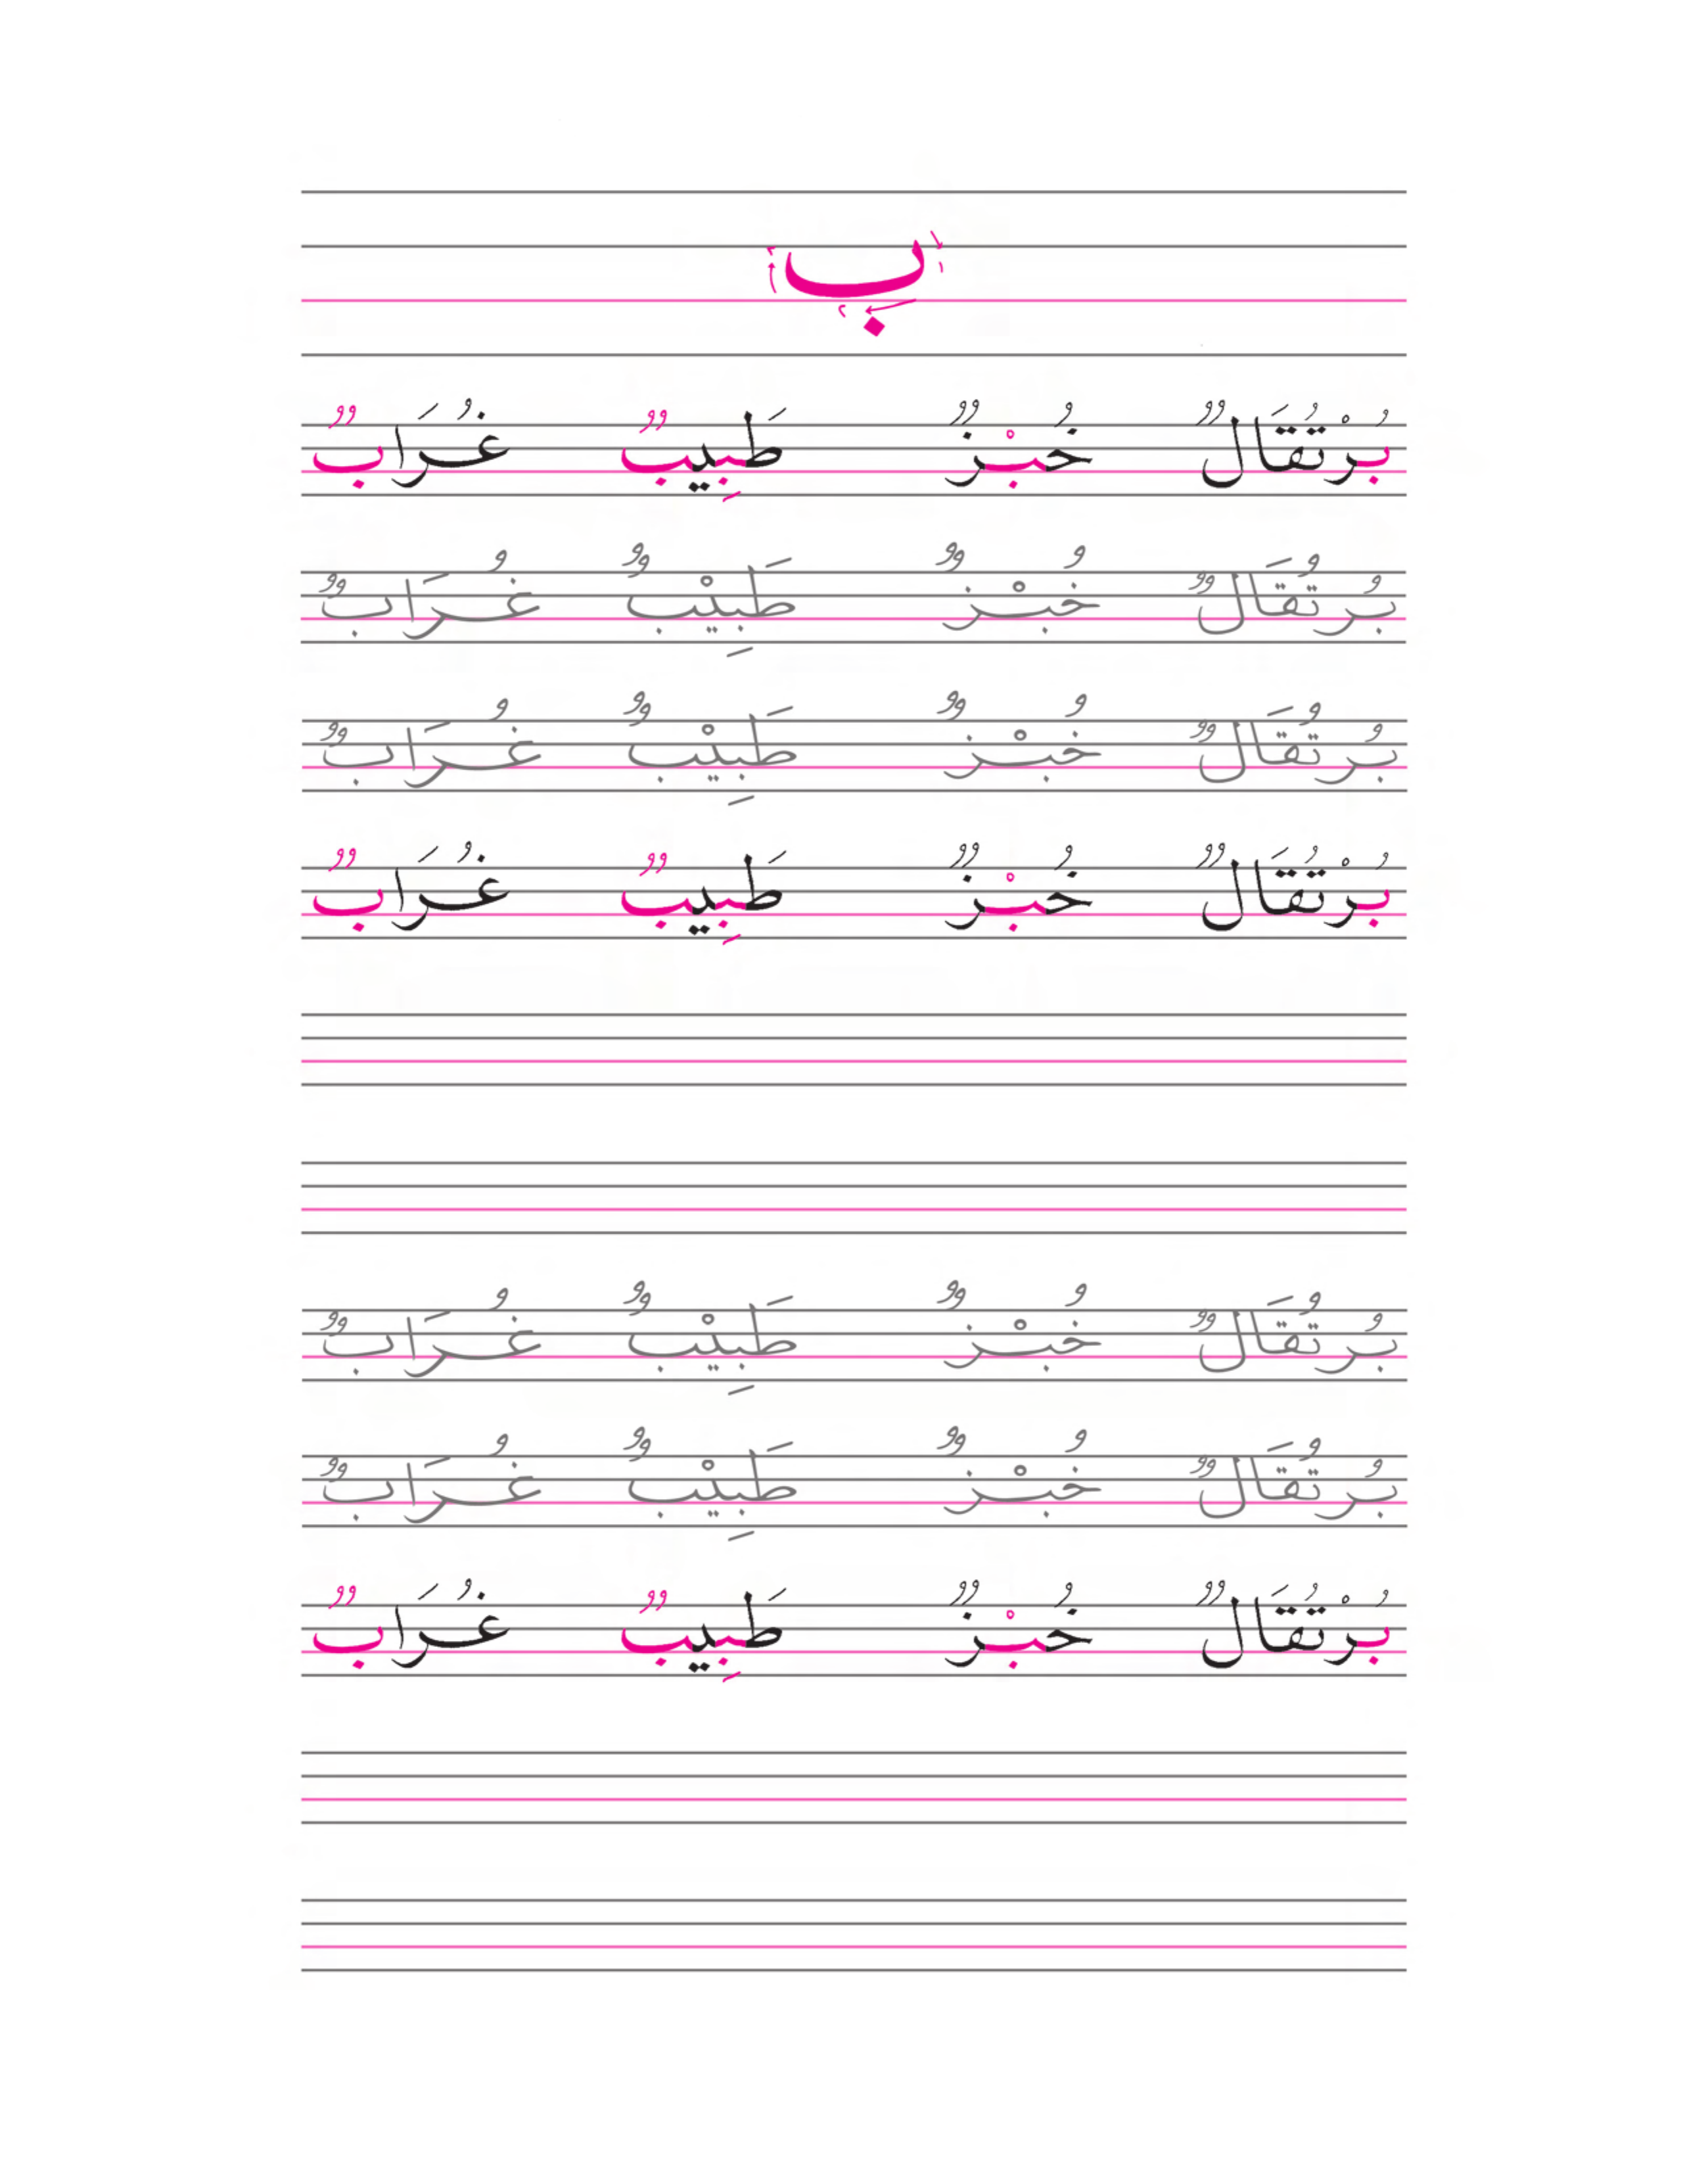 ب
بُرْتُقَالٌ خُبْزٌ طَبِيبٌ غُرَابٌ
بُرْتُقَالٌ خُبْزٌ طَبِيْبٌ غُرَابٌ
بُرْتُقَالٌ خُبْزٌ طَبِيْبٌ غُرَابٌ
بُرْتُقَالٌ خُبْزٌ طَبِيبٌ غُرَابٌ
بُرْتُقَالٌ خُبْزٌ طَبِيْبٌ غُرَابٌ
بُرْتُقَالٌ خُبْزٌ طَبِيْبٌ غُرَابٌ
بُرْتُقَالٌ خُبْزٌ طَبِيبٌ غُرَابٌ